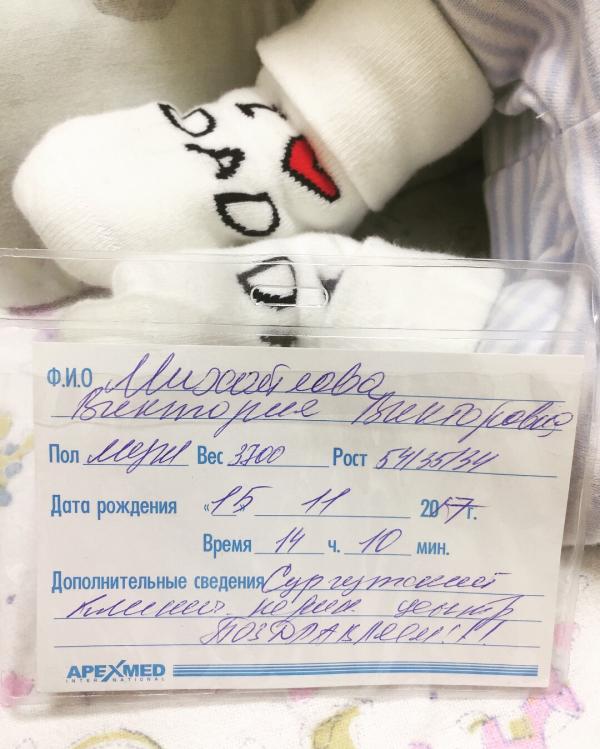 I
DAD
D
Ф.И.О Михайлова
Виктория Викторовна
Пол муж Вес 3700 Рост 54/35/34
Дата рождения «15» 11 2017г.
Время 14 ч. 10 мин.
Дополнительные сведения Сургутский
клинич. перин. центр
ПОЗДРАВЛЯЕМ!!!
APEXMED
INTERNATIONAL